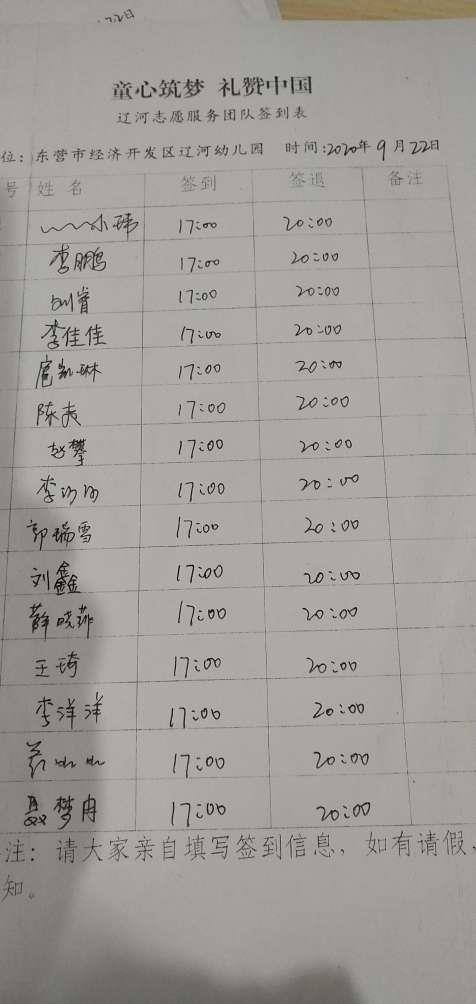 童心筑梦 礼赞中国
辽河志愿服务团队签到表
位：东营市经济开发区辽河幼儿园 时间：2020年9月22日
号 姓名 签到 签退 备注
小玮 17:00 20:00
李鹏 17:00 20:00
刘睿 17:00 20:00
李佳佳 17:00 20:00
扈凯琳 17:00 20:00
陈 17:00 20:00
赵攀 17:00 20:00
李 17:00 20:00
郭瑞雪 17:00 20:00
刘鑫鑫 17:00 20:00
薛晓菲 17:00 20:00
王琦 17:00 20:00
李洋洋 17:00 20:00
17:00 20:00
聂梦冉 17:00 20:00
注：请大家亲自填写签到信息，如有请假，
知。